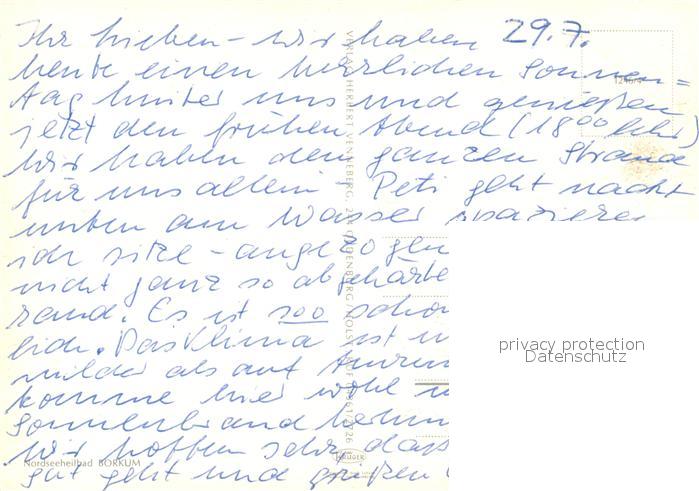 29.7.
Ihr Lieben - wir haben
heute einen herrlichen Sonnen=
tag hinter uns und genießen
jetzt den frühen Abend (18⁰⁰ Uhr)
Wir haben den ganzen Strand
für uns allein, Peti geht nackt
unten am Wasser spazieren
ich sitze - angezogen
nicht ganz so abgehärte
Es ist soo schö
lich. Das Klima ist
milder als auf
komme hier wohl
Sonnenbrand
Wir hoffen sehr, daß
gut geht und grüßen
Nordseeheilbad BORKUM
KRÜGER
privacy protection
Datenschutz